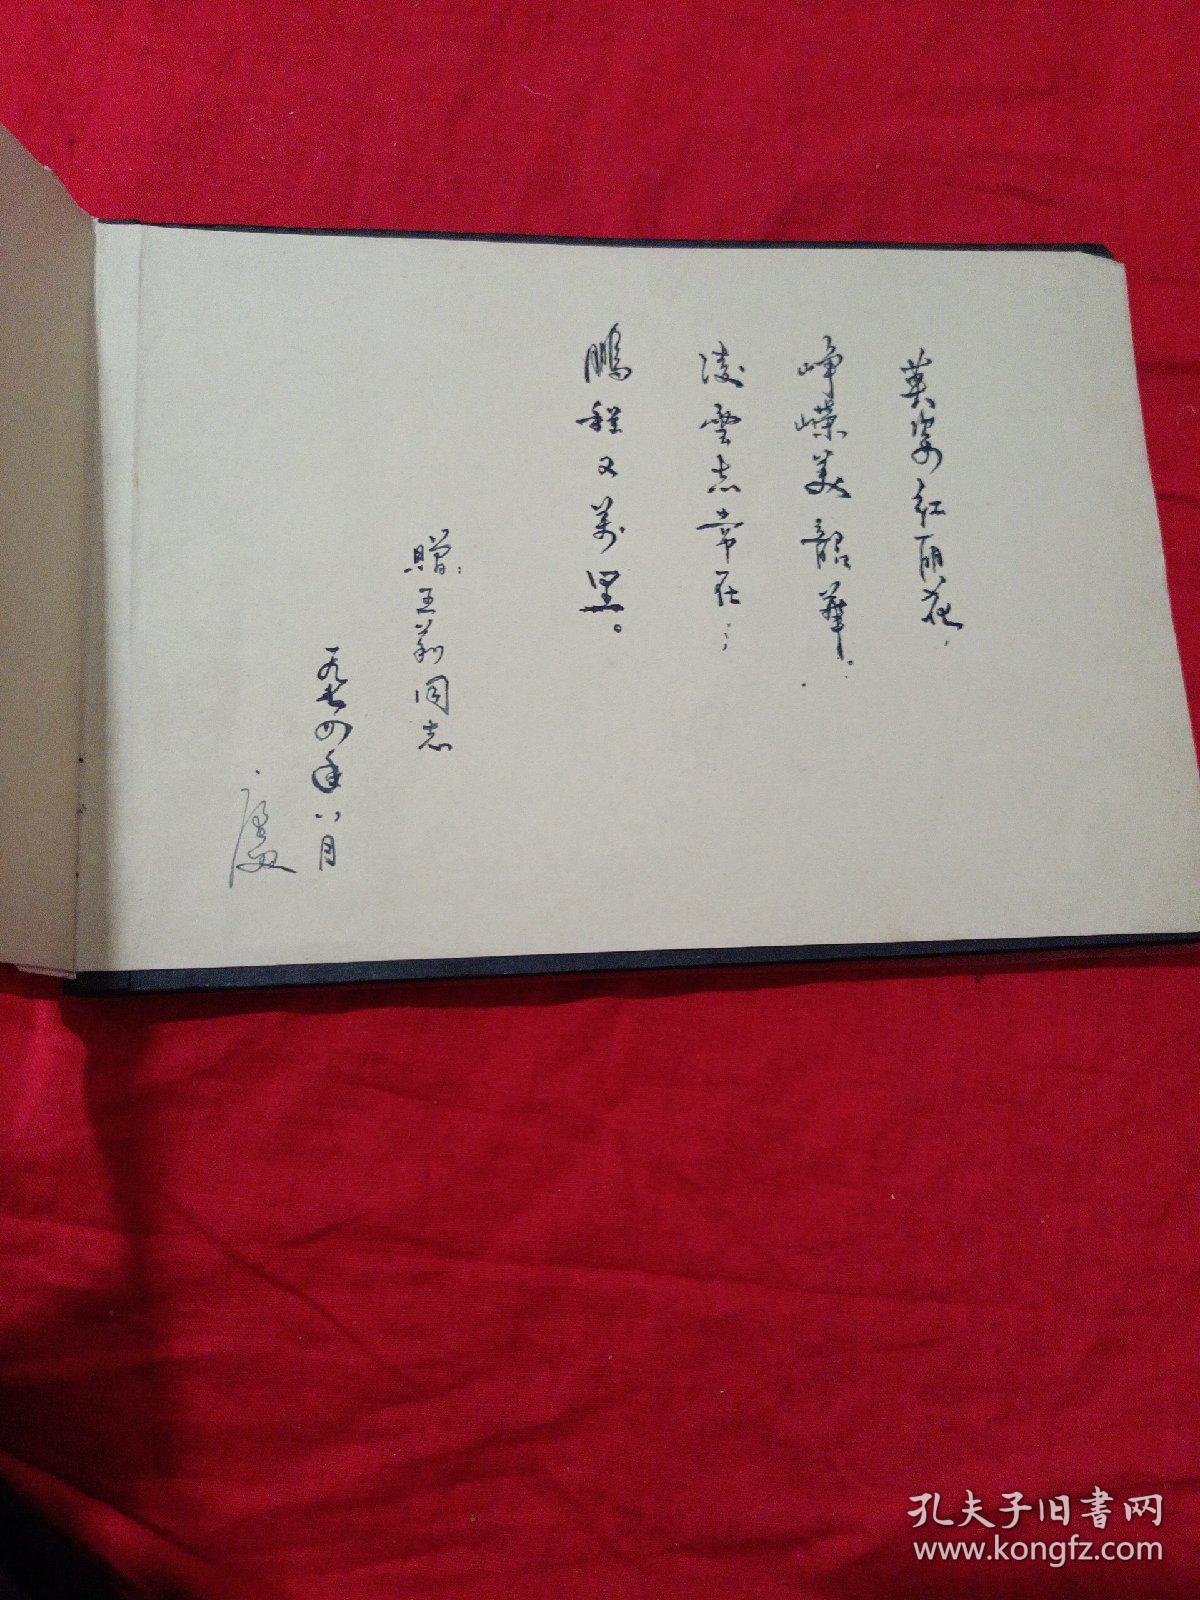 英姿红丽花，
峥嵘美韶華。
凌雲志常在…
鵬程又萬里。
贈：王莉同志
一九七四年八月
孔夫子旧書网
www.kongfz.com